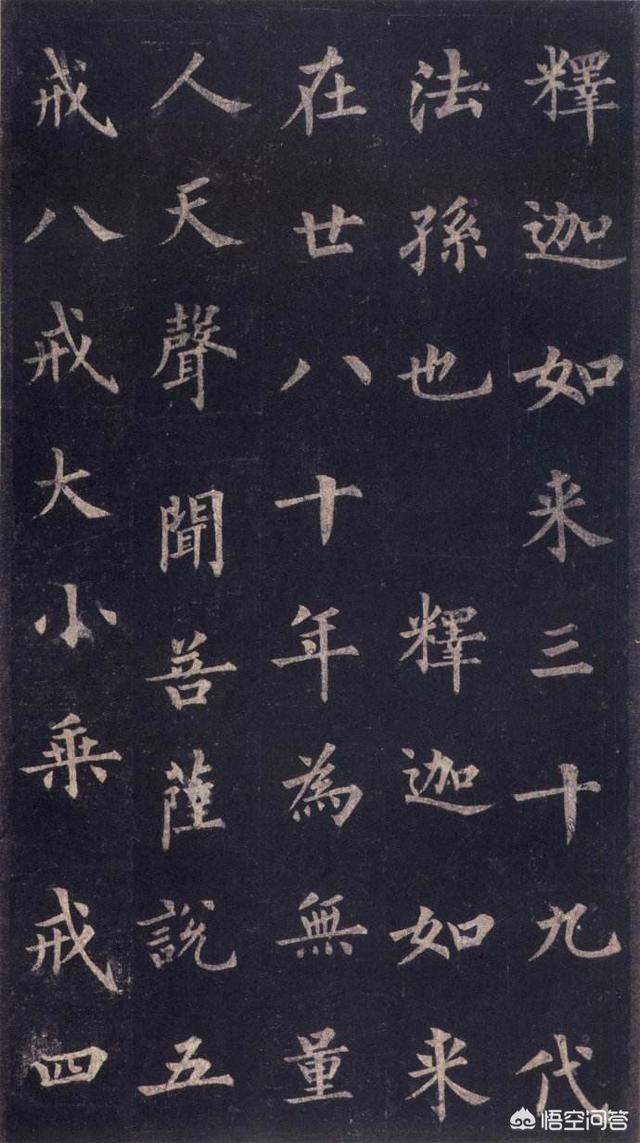 釋迦如来三十九代
法孫也釋迦如来
在廿八十年為無量
人天聲聞菩薩說五
戒八戒大小乗戒四
悟空问答